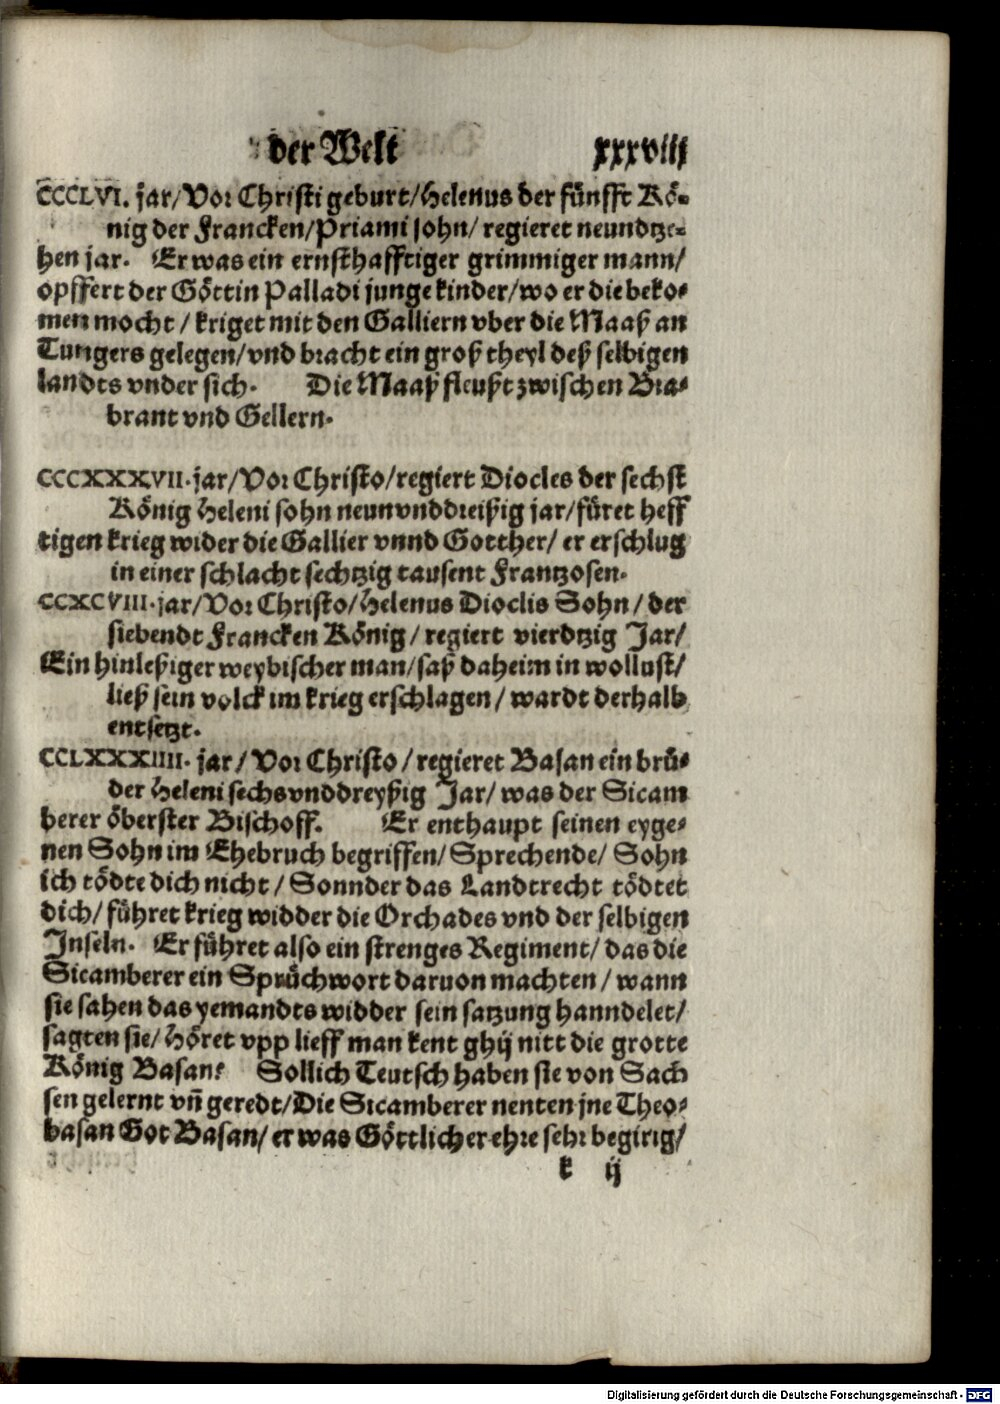 der Welt xxxviij
CCCLVI. jar/Vor Christi geburt/Helenus der fünfft Kö-
nig der Francken/Priami sohn/ regieret neundtze-
hen jar. Er was ein ernsthafftiger grimmiger mann/
opffert der Göttin Palladi junge kinder/wo er die beko-
men mocht / krieget mit den Galliern vber die Maaß an
Tungers gelegen/vnd bracht ein groß theyl deß selbigen
landts vnder sich. Die Maaß fleußt zwischen Bra-
brant vnd Gellern.
CCCXXXVII. jar/Vor Christo/regiert Diocles der sechst
König Heleni sohn neunvnddreißig jar/füret heff
tigen krieg wider die Gallier vnnd Gotther/ er erschlug
in einer schlacht sechtzig tausent Frantzosen.
CCXCVIII. jar/Vor Christo/Helenus Dioclis Sohn/ der
siebendt Francken König/ regiert vierdtzig Jar/
Ein hinleßiger weybischer man/saß daheim in wollust/
ließ sein volck im krieg erschlagen/ wardt derhalb
entsetzt.
CCLXXXIIII. jar/ Vor Christo/ regieret Basan ein brů-
der Heleni sechsvnddreyßig Jar/ was der Sicam
berer öberster Bischoff. Er enthaupt seinen eyge-
nen Sohn im Ehebruch begriffen/ Sprechende/ Sohn
ich tödte dich nicht/ Sonnder das Landtrecht tödtet
dich/ führet krieg widder die Orchades vnd der selbigen
Inseln. Er führet also ein strenges Regiment/ das die
Sicamberer ein Sprüchwort daruon machten/ wann
sie sahen das yemandts widder sein satzung hanndelet/
sagten sie/ Höret vpp lieff man kent ghij nitt die grotte
König Basan? Sollich Teutsch haben sie von Sach
sen gelernt vñ geredt/Die Sicamberer nenten jne Theo-
basan Got Basan/ er was Göttlicher ehre sehr begirig/
k ij
Digitalisierung gefördert durch die Deutsche Forschungsgemeinschaft - DFG